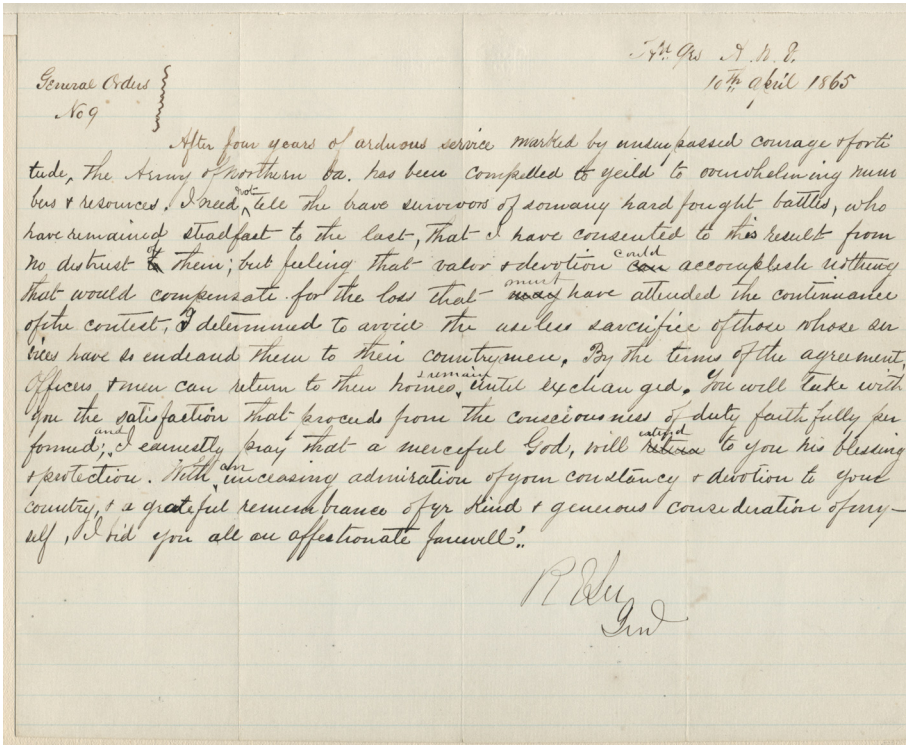 Hd. Qrs A. N. V.
10th April 1865
General Orders
No 9
After four years of arduous service marked by unsurpassed courage & forti
tude, the Army of Northern Va. has been compelled to yeild to overwhelming num
bers & resources. I need not tell the brave survivors of so many hard fought battles, who
have remained steadfast to the last, that I have consented to this result from
no distrust of them; but feeling that valor & devotion could can accomplish nothing
that would compensate for the loss that must may have attended the continuance
of the contest, I determined to avoid the useless sacrifice of those whose ser
vices have so endeared them to their countrymen. By the terms of the agreement,
Officers & men can return to their homes, & remain until exchanged. You will take with
you the satisfaction that proceeds from the consciousness of duty faithfully per
formed; and I earnestly pray that a merciful God, will extend to you his blessing
& protection. With an unceasing admiration of your constancy & devotion to your
country, & a grateful remembrance of yr kind & generous consideration of my-
self, I bid you all an affectionate farewell."
R E Lee
Genl